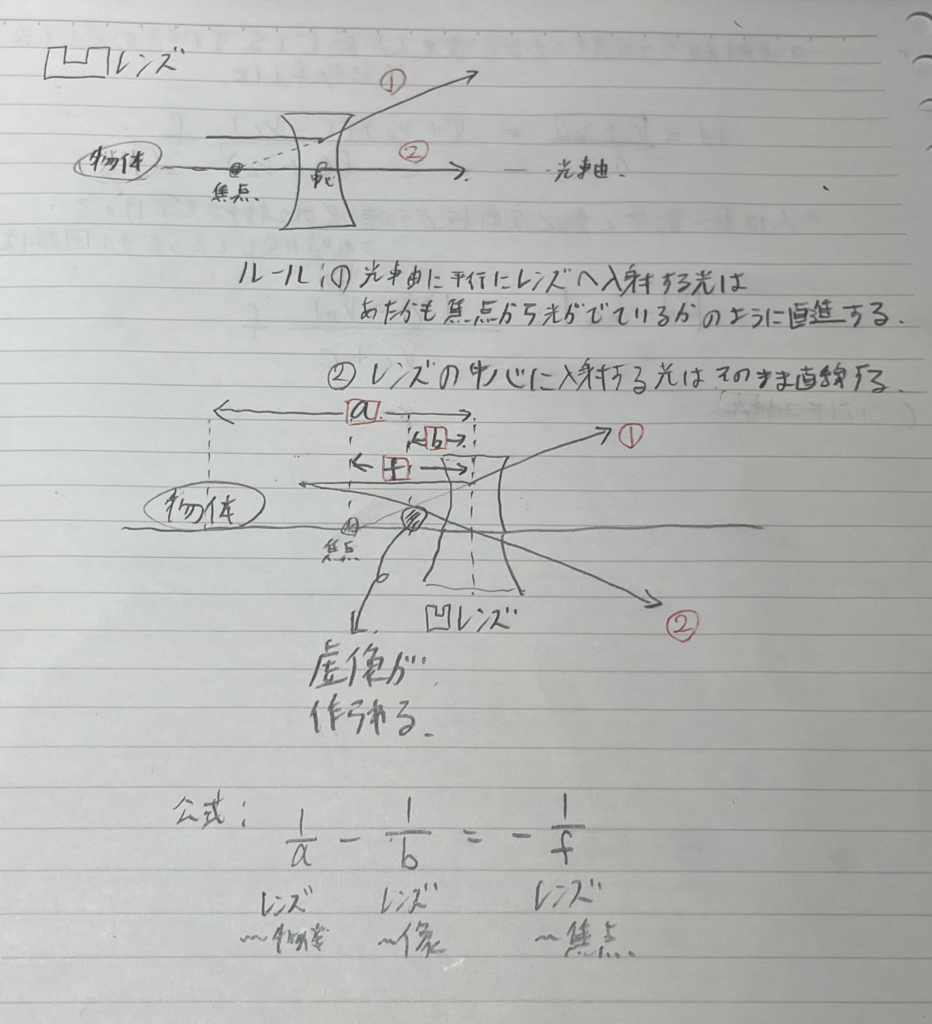 凹レンズ
①
物体
②
焦点
中心
光軸.
ルール:① 光軸に平行にレンズへ入射する光は
あたかも焦点から光がでているかのように直進する.
② レンズの中心に入射する光はそのまま直線する.
a
b
f
①
物体
焦点
凹レンズ
②
虚像が
作られる.
公式: 1/a - 1/b = - 1/f
レンズ レンズ レンズ
〜物体 〜像 〜焦点.